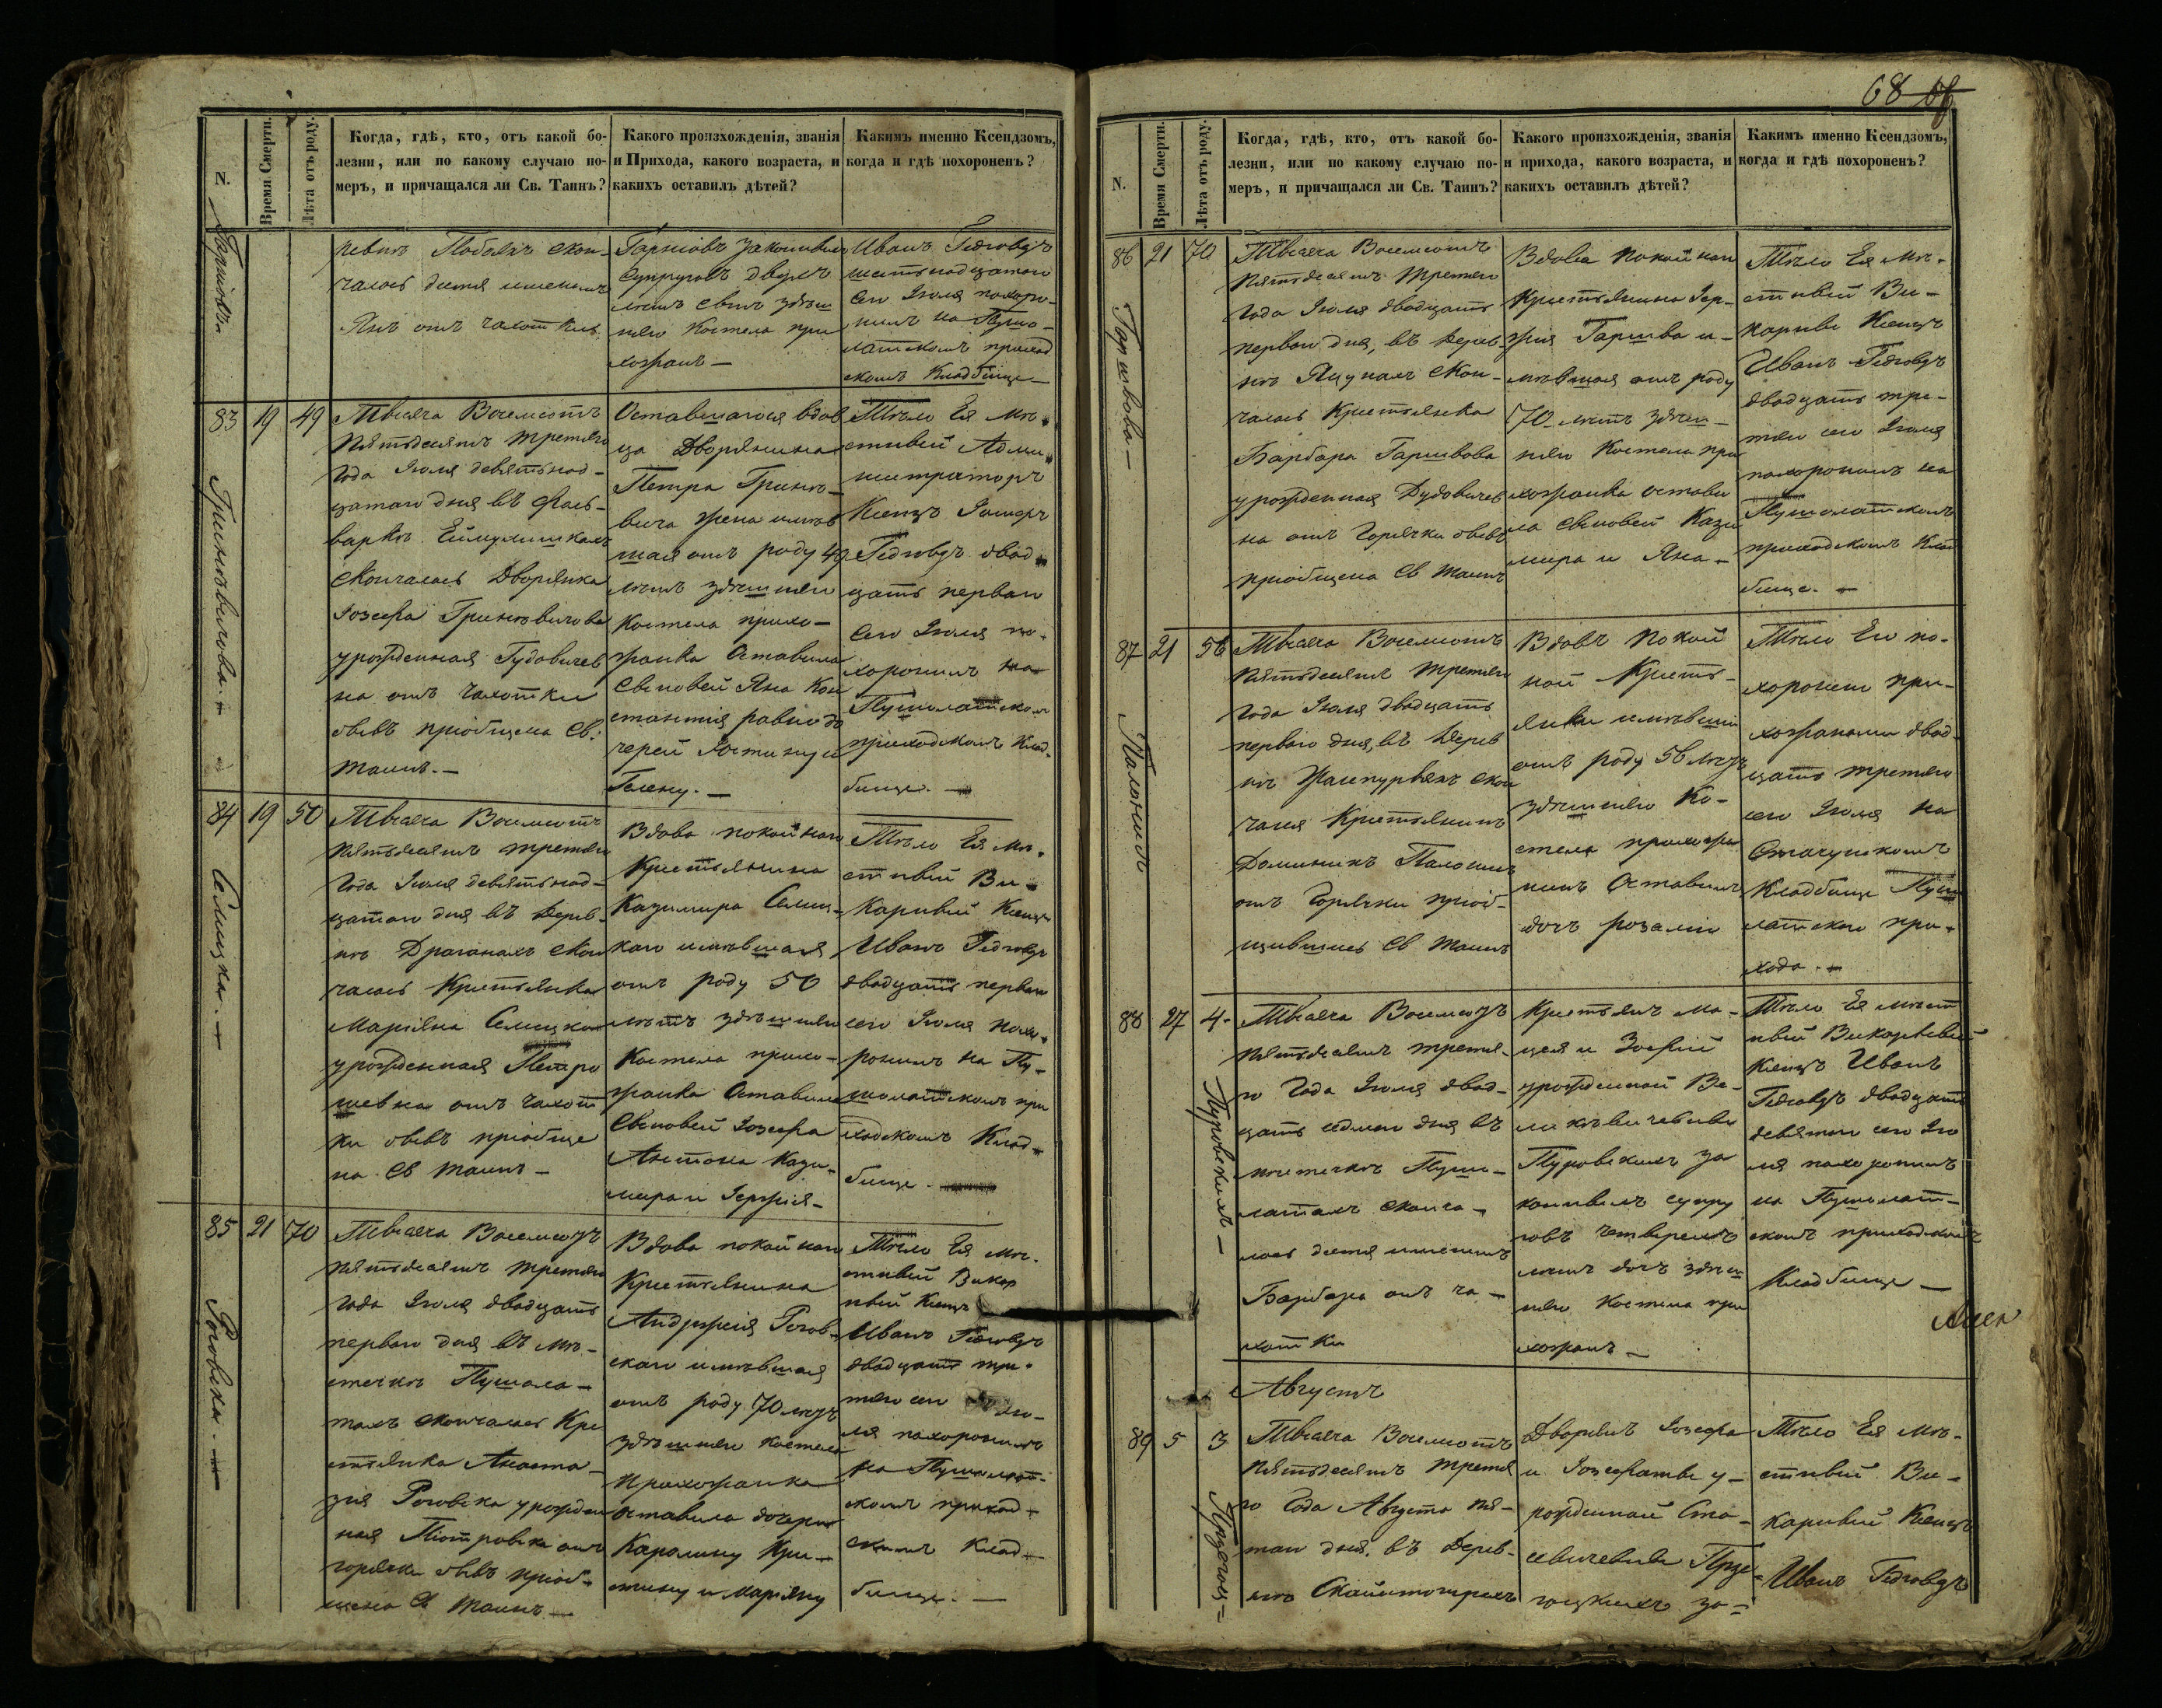 68
N.
Время Смерти.
Лѣта отъ роду.
Когда, гдѣ, кто, отъ какой бо-
лезни, или по какому случаю по-
меръ, и причащался ли Св. Таинъ?
Какого произхожденія, званія
и Прихода, какого возраста, и
какихъ оставилъ дѣтей?
Какимъ именно Ксендзомъ,
когда и гдѣ похороненъ?
чалось дитя именемъ
Янъ отъ чахотки
Гаршовъ законныхъ
Супруговъ двухъ
лѣтъ сынъ здѣш
няго Костела при
хожанъ —
Иванъ Гедговдъ
шестьнадцатаго
сего Іюля похоро-
нилъ на Пушо-
латскомъ приход
скомъ Кладбище —
83
19
49
Гриневичова. —
Тысяча Восемсотъ
Пятьдесятъ третяго
Года Іюля девятьнад-
цатаго дня въ фоль-
варкѣ
скончалась Дворянка
Іозефа Гриневичова
урожденная Гудовичев
на отъ чахотки
бывъ пріобщена Св.
таинъ. —
Оставшагося вдов
ца Дворянина
Петра Грине-
вича жена имѣв
шая отъ роду 49
лѣтъ здѣшняго
Костела прихо-
жанка Оставила
Сыновей Яна Кон
стантія равно до
черей Юстину и
Гелену. —
Тѣло Ея мѣ-
стный Адми-
нистраторъ
Ксендзъ Іосифъ
Гедговдъ двад-
цать перваго
Сего Іюля по-
хоронилъ на
Пушолатском
приходскомъ Клад-
бище. —
84
19
50
Селицка. —
Тысяча Восемсотъ
Пятьдесятъ третяго
Года Іюля девятьнад-
цатаго дня въ дерев-
нѣ Драганахъ скон
чалась Крестьянка
Маріяна Селицкая
урожденная Петро
шевна отъ чахот
ки бывъ пріобще
на Св таинъ —
Вдова покойнаго
Крестьянина
Казимира Селиц-
каго имѣвшая
отъ роду 50
лѣтъ здѣшняго
Костела прихо-
жанка Оставила
Сыновей Іозефа
Антона Кази-
мира и Іержія —
Тѣло Ея мѣ-
стный Ви-
карный Ксендзъ
Иванъ Гедговдъ
двадцать перваго
сего Іюля похо-
ронилъ на Пу-
шолатскомъ при
ходскомъ Клад-
бище. —
85
21
70
Роговска. —
Тысяча Восемсотъ
Пятьдесятъ третяго
Года Іюля двадцать
перваго дня въ мѣ-
стечкѣ Пушола-
тахъ скончалась Кре
стьянка Анаста-
зія Роговска урожден
ная Піотровска отъ
горячки бывъ пріоб-
щена Св таинъ —
Вдова покойнаго
Крестьянина
Андржея Рогов-
скаго имѣвшая
отъ роду 70 лѣтъ
здѣшняго костела
Прихожанка
оставила дочери
Каролину Кри-
стину и Маріяну
Тѣло Ея мѣ-
стный Викар
ный Ксендзъ
Иванъ Гедговдъ
двадцать тре-
тяго сего Ію-
ля похоронилъ
на Пушолат-
скомъ приход-
скомъ Клад-
бище. —
N.
Время Смерти.
Лѣта отъ роду.
Когда, гдѣ, кто, отъ какой бо-
лезни, или по какому случаю по-
меръ, и причащался ли Св. Таинъ?
Какого произхожденія, званія
и прихода, какого возраста, и
какихъ оставилъ дѣтей?
Какимъ именно Ксендзомъ,
когда и гдѣ похороненъ?
86
21
70
Гаршвова —
Тысяча Восемсотъ
Пятьдесятъ третяго
Года Іюля двадцать
перваго дня, въ дерев-
нѣ Яцунахъ скон-
чалась Крестьянка
Барбара Гаршвова
урожденная Дудовичев
на отъ горячки бывъ
пріобщена Св таинъ
Вдова покойнаго
Крестьянина Іер-
жія Гаршва и-
мѣвшая отъ роду
70 лѣтъ здѣш-
няго Костела при
хожанка остави
ла сыновей Кази
мира и Яна —
Тѣло Ея мѣ-
стный Ви-
карный Ксендзъ
Иванъ Гедговдъ
двадцать тре-
тяго сего Іюля
похоронилъ на
Пушолатскомъ
приходскомъ Клад
бище. —
87
21
56
Тысяча Восемсотъ
Пятьдесятъ третяго
Года Іюля двадцать
перваго дня, въ дерев
нѣ скон
чался Крестьянинъ
Доминикъ
отъ Горячки пріоб-
щившись Св таинъ
Вдовъ покой
ной Кресть-
янки имѣвшій
отъ роду 56 лѣтъ
здѣшняго Ко-
стела прихожа
нинъ Оставилъ
дочь Розалію
Тѣло Его по-
хоронено при-
хожанами двад-
цать третяго
сего Іюля на
Кладбище Пушо
латскаго при-
хода. —
88
27
4
Туровскихъ —
Тысяча Восемсотъ
Пятьдесятъ третя-
го Года Іюля двад-
цать седмаго дня въ
мѣстечкѣ Пушо-
латахъ сконча-
лось дитя именемъ
Барбара отъ ча-
хотки
Крестьянъ Ма-
цея и Зофіи
урожденной Ве-
ликевичевны
Туровскихъ за
конныхъ супру
говъ четырехъ
лѣтъ дочь здѣш
няго Костела при
хожанъ —
Тѣло Ея мѣст
ный Викарный
Ксендзъ Иванъ
Гедговдъ двадцать
девятаго сего Ію
ля похоронилъ
на Пушолат-
скомъ приходскомъ
Кладбище —
Августъ
89
5
3
Тысяча Восемсотъ
Пятьдесятъ третя
го Года Августа пя-
таго дня, въ дерев-
нѣ
Дворянъ Іозефа
и Іозефаты у-
рожденной Ста-
севичевны
за-
Тѣло Ея мѣ-
стный Ви-
карный Ксендзъ
Иванъ Гедговдъ